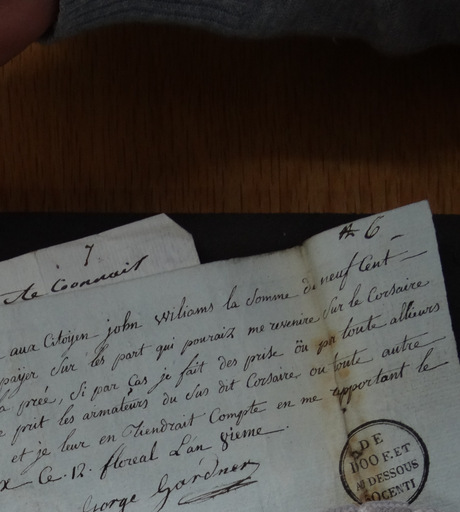 7
№ 6
aux Citoyen john Wiliams la Somme de neuf Cent
payer Sur les part qui pouraiz me revenire Sur le Corsaire
préé, Si par Cas je fait des prise ōu par toute allieurs
prit les armateurs du Sus dit Corsaire, ou toute autre
et je leur en Tiendrait Compte en me rapportant le
Ce 12 floreal L'an Vieme.
George Gardner
DE
1000 F. ET
AU DESSOUS
50 CENTI